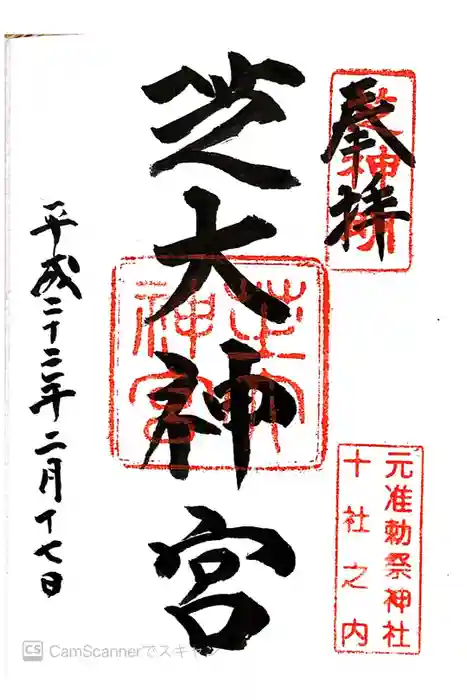 奉拝
元准勅祭神社
十社之内
芝大神宮
芝大
神宮
平成二十二年二月十七日
CS CamScannerでスキャン